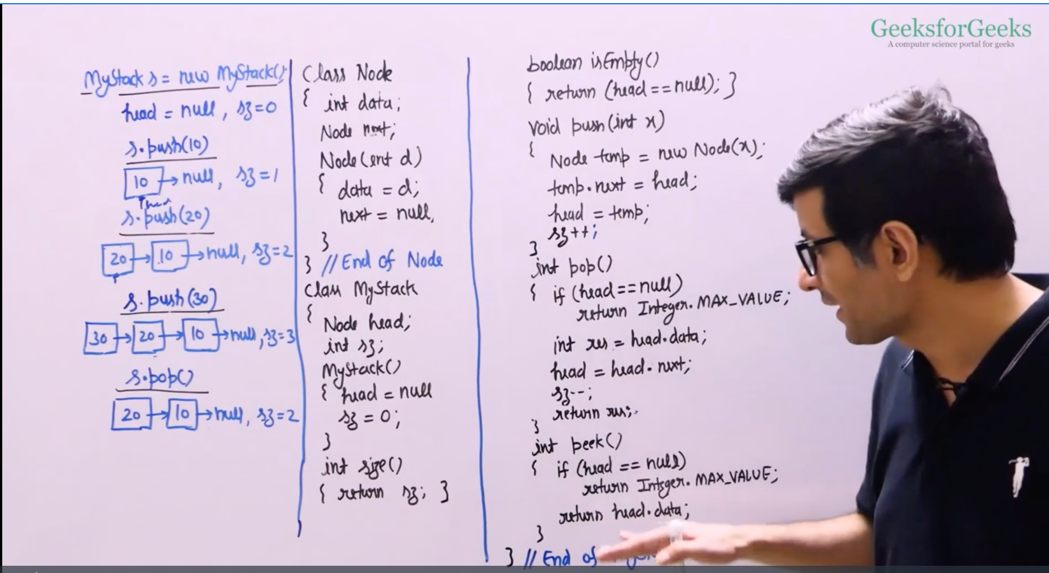 GeeksforGeeks
A computer science portal for geeks
MyStack s = new MyStack()
head = null, sz=0
s.push(10)
10 → null, sz=1
head
s.push(20)
20 → 10 → null, sz=2
s.push(30)
30 → 20 → 10 → null, sz=3
s.pop()
20 → 10 → null, sz=2
Class Node
{ int data;
Node next;
Node(int d)
{ data = d;
next = null,
}
} // End of Node
Class MyStack
{
Node head;
int sz;
MyStack()
{ head = null
sz = 0;
}
int size()
{ return sz; }
boolean isEmpty()
{ return (head==null); }
void push(int x)
{ Node temp = new Node(x);
temp.next = head;
head = temp;
sz++;
}
int pop()
{ if (head==null)
return Integer.MAX_VALUE;
int res = head.data;
head = head.next;
sz--;
return res;
}
int peek()
{ if (head == null)
return Integer.MAX_VALUE;
return head.data;
}
} // End of